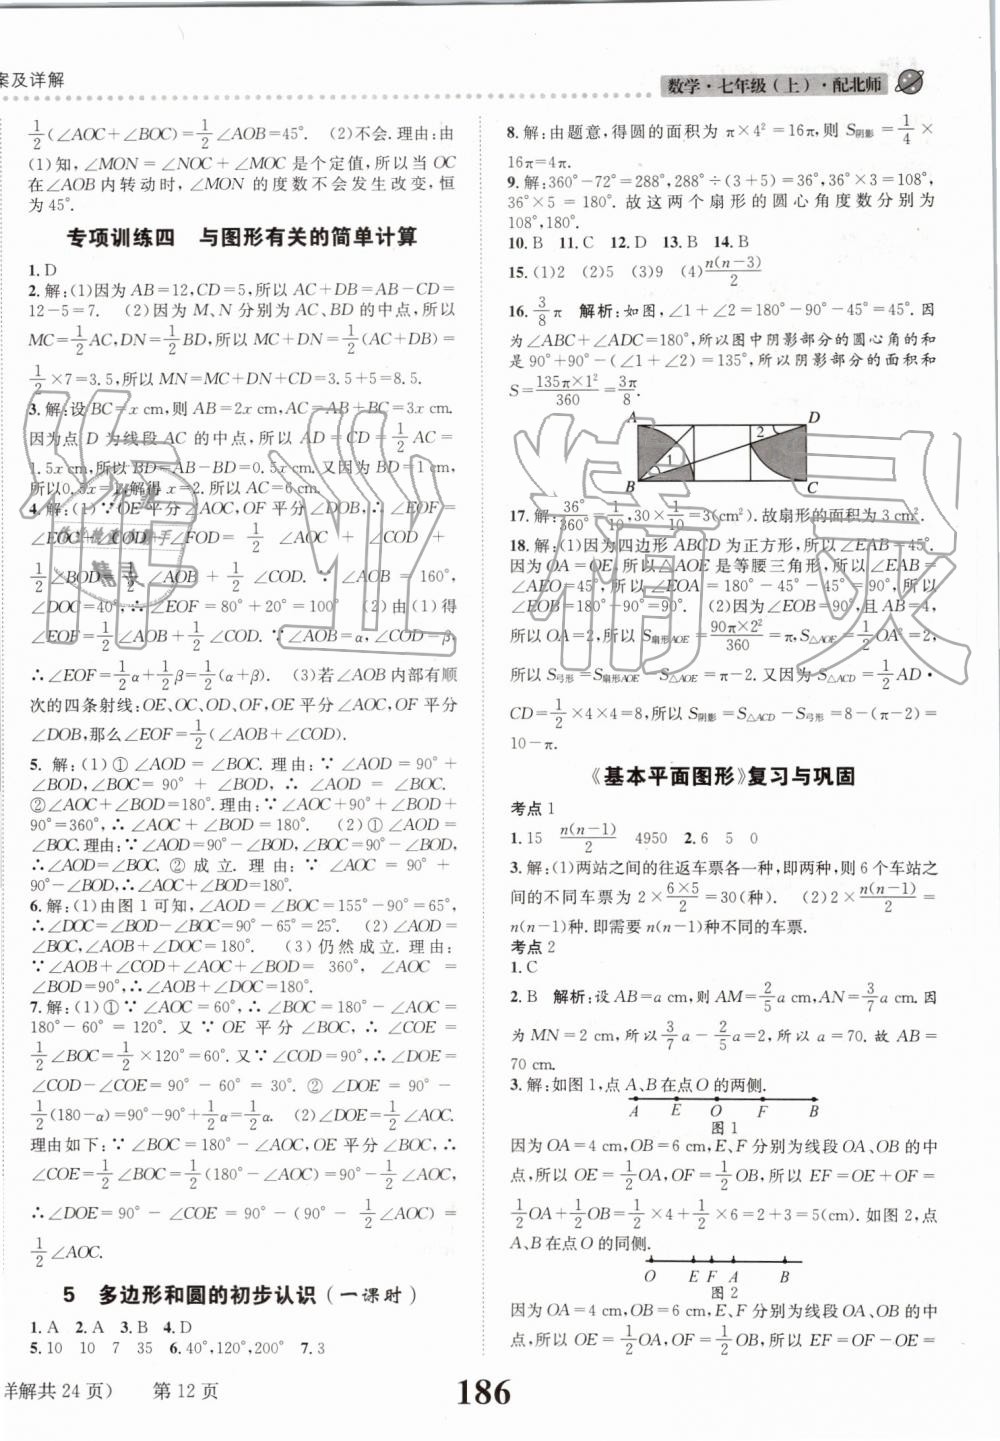 案及详解
数学·七年级(上)·配北师
1/2(∠AOC+∠BOC)=1/2∠AOB=45°. (2)不会.理由:由
(1)知,∠MON=∠NOC+∠MOC 是个定值,所以当 OC
在∠AOB 内转动时,∠MON 的度数不会发生改变,恒
为 45°.
专项训练四 与图形有关的简单计算
1. D
2. 解:(1)因为 AB=12,CD=5,所以 AC+DB=AB-CD=
12-5=7. (2)因为 M、N 分别为 AC、BD 的中点,所以
MC=1/2AC,DN=1/2BD,所以 MC+DN=1/2(AC+DB)=
1/2×7=3.5,所以 MN=MC+DN+CD=3.5+5=8.5.
3. 解:设 BC=x cm,则 AB=2x cm,AC=AB+BC=3x cm.
因为点 D 为线段 AC 的中点,所以 AD=CD=1/2AC=
1.5x cm,所以 BD=AB-BD=0.5x cm.又因为 BD=1 cm,
所以 0.5x=1,解得 x=2.所以 AC=6 cm.
4. 解:(1)∵OE 平分∠AOC,OF 平分∠DOB,∴∠EOF=
∠EOC+∠COD+∠FOD=1/2∠AOC+∠COD+
1/2∠BOD=1/2∠AOB+1/2∠COD. ∵∠AOB=160°,
∠DOC=40°,∴∠EOF=80°+20°=100° (2)由(1)得
∠EOF=1/2∠AOB+1/2∠COD. ∵∠AOB=α,∠COD=β,
∴∠EOF=1/2α+1/2β=1/2(α+β). (3)若∠AOB 内部有顺
次的四条射线:OE、OC、OD、OF,OE 平分∠AOC,OF 平分
∠DOB,那么∠EOF=1/2(∠AOB+∠COD).
5. 解:(1)①∠AOD=∠BOC.理由:∵∠AOD=90°+
∠BOD,∠BOC=90°+∠BOD,∴∠AOD=∠BOC.
②∠AOC+∠BOD=180°.理由:∵∠AOC+90°+∠BOD+
90°=360°,∴∠AOC+∠BOD=180°. (2)①∠AOD=
∠BOC.理由:∵∠AOD=90°-∠BOD,∠BOC=90°-∠BOD,
∴∠AOD=∠BOC. ②成立.理由:∵∠AOC=90°+
90°-∠BOD,∴∠AOC+∠BOD=180°.
6. 解:(1)由图 1 可知,∠AOD=∠BOC=155°-90°=65°,
∴∠DOC=∠BOD-∠BOC=90°-65°=25°. (2)∠AOD=
∠BOC,∠AOB+∠DOC=180°. (3)仍然成立.理由:
∵∠AOB+∠COD+∠AOC+∠BOD=360°,∠AOC=
∠BOD=90°,∴∠AOB+∠COD=180°.
7. 解:(1)①∵∠AOC=60°,∴∠BOC=180°-∠AOC=
180°-60°=120°.又∵OE 平分∠BOC,∴∠COE=
1/2∠BOC=1/2×120°=60°.又∵∠COD=90°,∴∠DOE=
∠COD-∠COE=90°-60°=30°. ②∠DOE=90°-
1/2(180-α)=90°-90°+1/2α=1/2α. (2)∠DOE=1/2∠AOC.
理由如下:∵∠BOC=180°-∠AOC,OE 平分∠BOC,∴
∠COE=1/2∠BOC=1/2(180°-∠AOC)=90°-1/2∠AOC,
∴∠DOE=90°-∠COE=90°-(90°-1/2∠AOC)=
1/2∠AOC.
5 多边形和圆的初步认识(一课时)
1. A 2. A 3. B 4. D
5. 10 10 7 35 6. 40°,120°,200° 7. 3
8. 解:由题意,得圆的面积为 π×4²=16π,则 S阴影=1/4×
16π=4π.
9. 解:360°-72°=288°,288°÷(3+5)=36°,36°×3=108°,
36°×5=180°.故这两个扇形的圆心角度数分别为
108°,180°.
10. B 11. C 12. D 13. B 14. B
15. (1)2 (2)5 (3)9 (4)n(n-3)/2
16. 3/8π 解析:如图,∠1+∠2=180°-90°-45°=45°.因
为∠ABC+∠ADC=180°,所以图中阴影部分的圆心角的和
是 90°+90°-(∠1+∠2)=135°,所以阴影部分的面积和
S=135π×1²/360=3π/8.
A D
2
1
B C
17. 解:36°/360°=1/10,30×1/10=3(cm²).故扇形的面积为 3 cm².
18. 解:(1)因为四边形 ABCD 为正方形,所以∠EAB=45°.
因为 OA=OE,所以△AOE 是等腰三角形,所以∠EAB=
∠AEO=45°,所以∠EOA=180°-45°-45°=90°,所以
∠EOB=180°-90°=90°. (2)因为∠EOB=90°,且 AB=4,
所以 OA=2,所以 S扇形AOE=90π×2²/360=π,S△AOE=1/2OA²=2,
所以 S弓形=S扇形AOE-S△AOE=π-2.又因为 S△ACD=1/2AD·
CD=1/2×4×4=8,所以 S阴影=S△ACD-S弓形=8-(π-2)=
10-π.
《基本平面图形》复习与巩固
考点 1
1. 15 n(n-1)/2 4950 2. 6 5 0
3. 解:(1)两站之间的往返车票各一种,即两种,则 6 个车站之
间的不同车票为 2×6×5/2=30(种). (2)2×n(n-1)/2=
n(n-1)种.即需要 n(n-1)种不同的车票.
考点 2
1. C
2. B 解析:设 AB=a cm,则 AM=2/5a cm,AN=3/7a cm.因
为 MN=2 cm,所以3/7a-2/5a=2,所以 a=70.故 AB=
70 cm.
3. 解:如图 1,点 A、B 在点 O 的两侧.
A E O F B
图 1
因为 OA=4 cm,OB=6 cm,E、F 分别为线段 OA、OB 的中
点,所以 OE=1/2OA,OF=1/2OB,所以 EF=OE+OF=
1/2OA+1/2OB=1/2×4+1/2×6=2+3=5(cm).如图 2,点
A、B 在点 O 的同侧.
O E F A B
图 2
因为 OA=4 cm,OB=6 cm,E、F 分别为线段 OA、OB 的中
点,所以 OE=1/2OA,OF=1/2OB,所以 EF=OF-OE=
详解共 24 页) 第 12 页
186
作业精灵